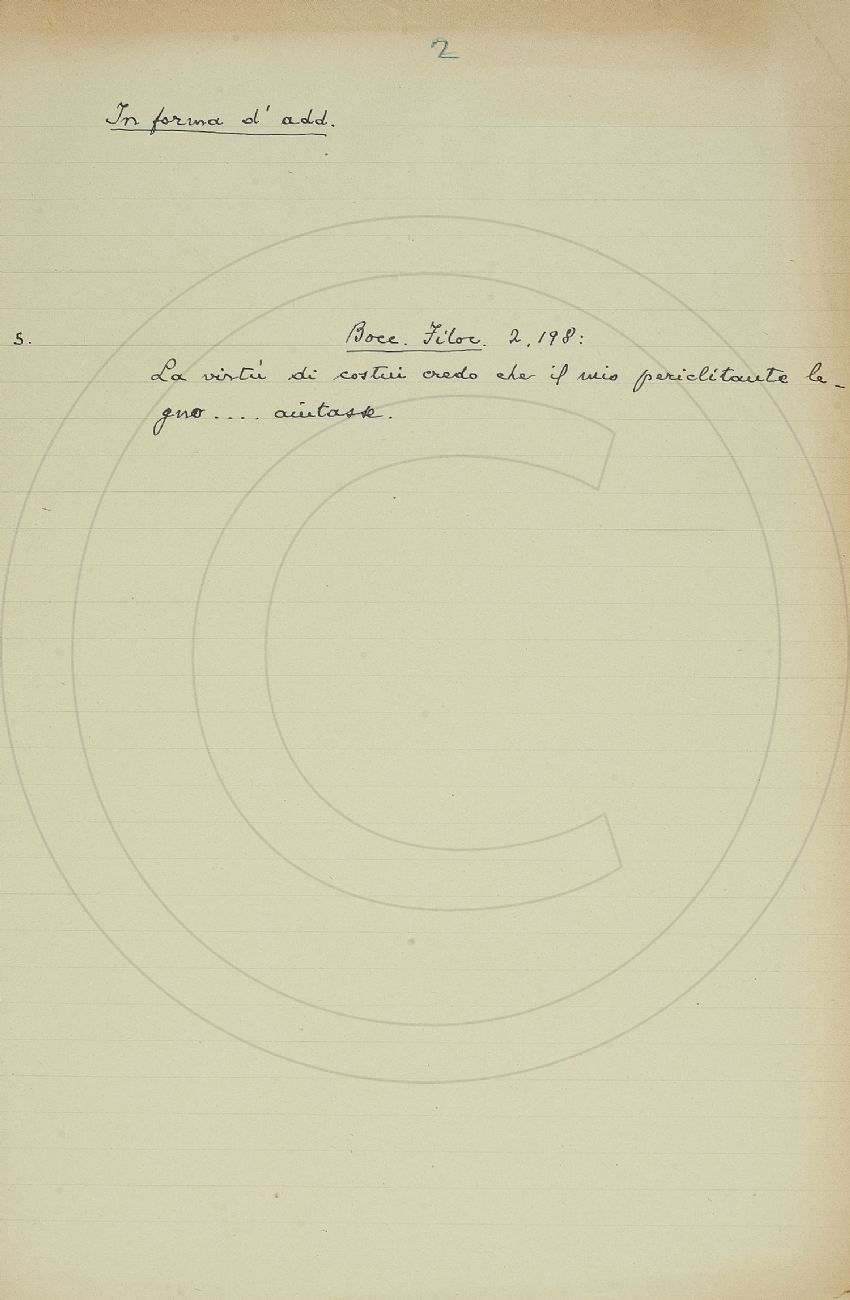 2
In forma d' add.
s. Bocc. Filoc. 2, 198:
La virtù di costui credo che il mio periclitante le-
gno .... aiutasse.